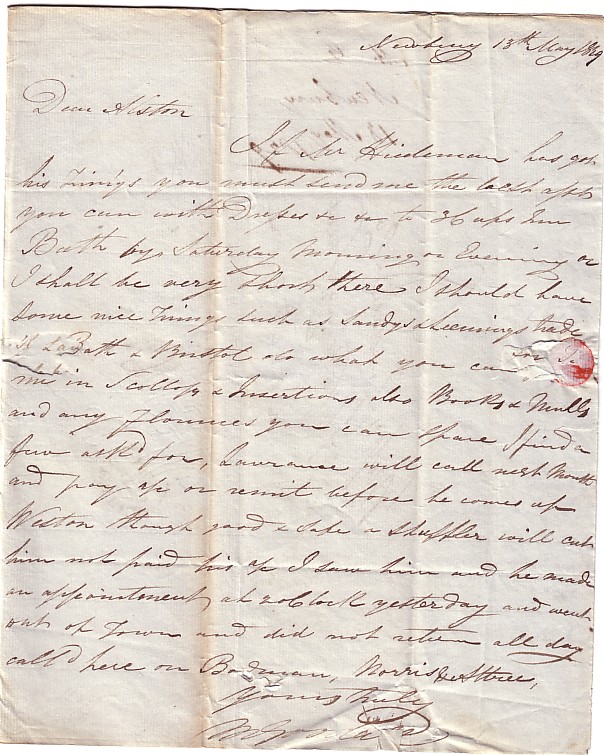 Newbury 13th May 1819
Dear Aiston
If Mr Hindeman has got
his Things you must send me the last appt
you can with Dresses &c &c to 3 Cups Inn
Bath by Saturday Morning or Evening or
I shall be very Short there I should have
some nice Things such as Sandys & Leemings trade
Bath & Bristol do what you can
me in Scollops & Insertions also Books & Mulls
and any flounces you can Spare I find a
few ask'd for, Lawrance will call next Month
and pay up or remit before he comes up
Weston though good & Safe a Shuffler will cut
him not paid his I saw him and he made
an appointment at 2 oClock yesterday and went
out of Town and did not return all day
call'd here on Bodman, Norris &
Yours truly